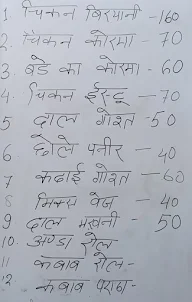 1. चिकन बिरयानी -160
2. चिकन कोरमा - 70
3. बडे का कोरमा - 60
4. चिकन ईस्टू - 70
5 दाल गोश्त - 50
6 छोले पनीर - 40
7 कढाई गोश्त - 60
8 मिक्स वेज - 40
9 दाल मखनी - 50
10. अण्डा रोल
11 कबाब रोल -
12 कबाब पराठा -